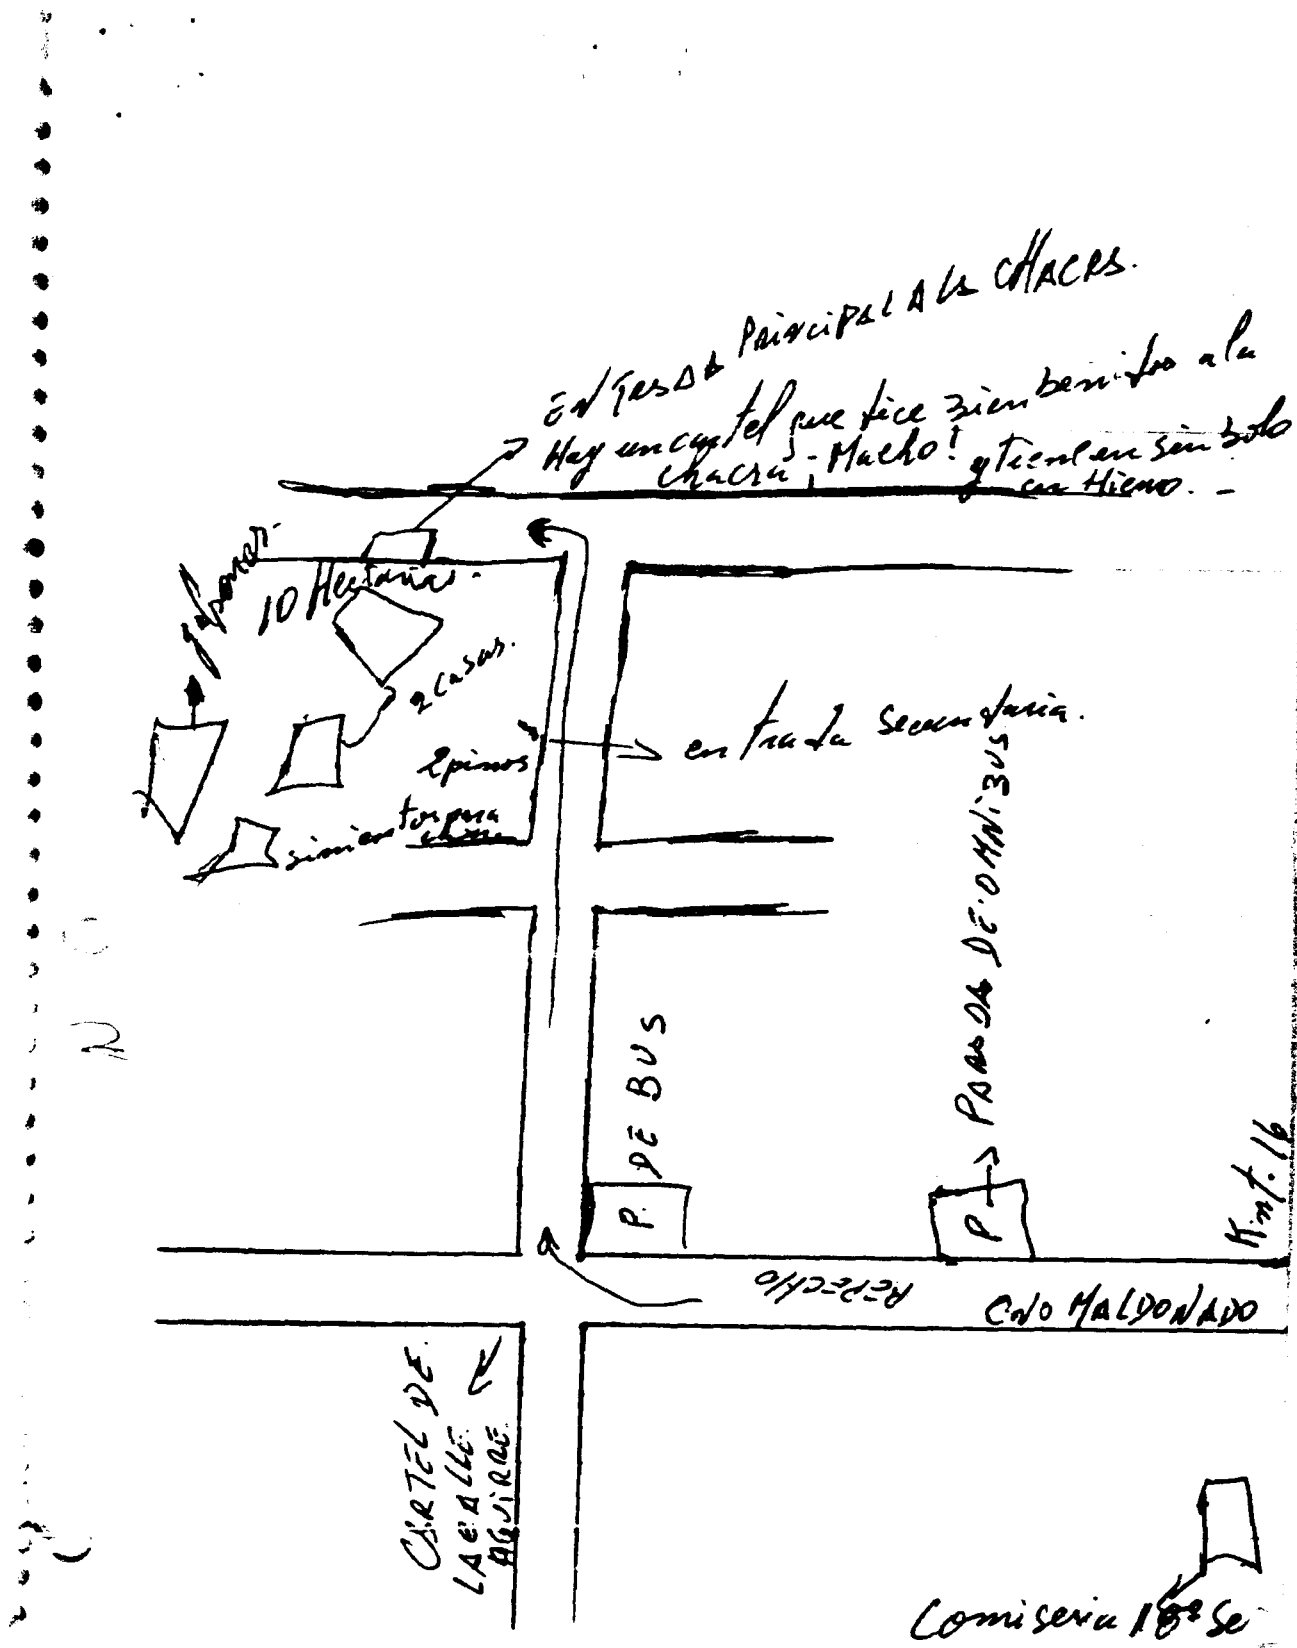 ENTRADA PRINCIPAL A LA CHACRA.
Hay un cartel que dice bienbenidos a la
chacra ¡Macho! y tiene un simbolo
en Hierro. -
galpones.
10 Hectarias.
2 casas.
entrada secundaria.
2 pinos
simientos para
PARADA DE OMNIBUS
DE BUS
P.
P
Kmt. 16
REPECHO
CNO MALDONADO
CARTEL DE
LACALLE
AGUIRRE
Comiseria 18ª Se
2